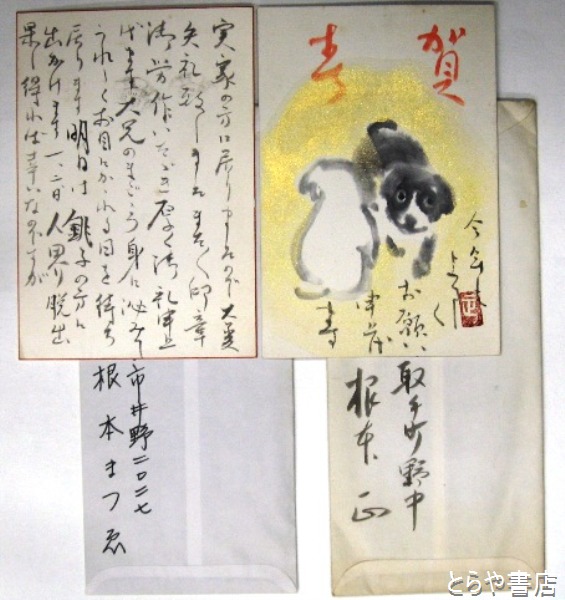 賀
春
今年も
よろしく
お願い
申上
実家の方に戻り申候ので大変
失礼致しました まったく印章
御労作いただき厚く御礼申上
げます 大兄のまごころ身に泌みて
うれしくお目にかゝれる日を待ち
戻ります 明日は銚子の方に
出かけます 一、二日人界の脱出
果し得れば幸いなのですが
市井野二〇二七
根本まつゑ
取手町野中
根本正
とらや書店